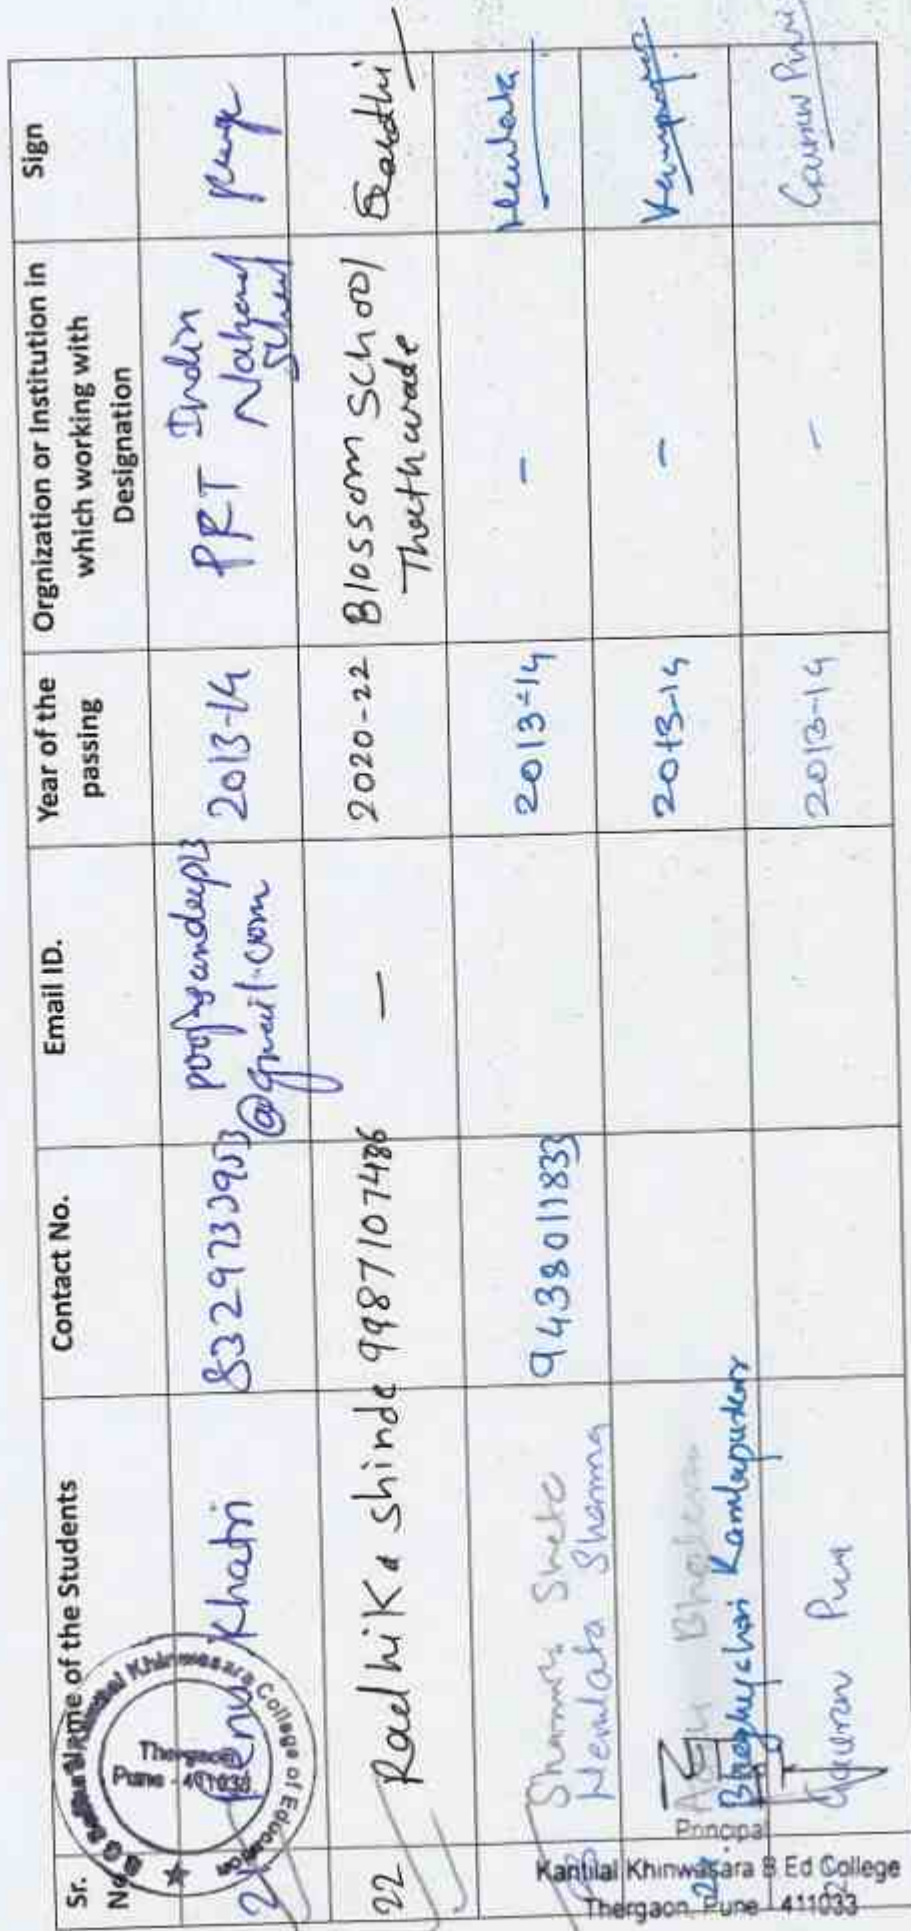 Sr. No
Name of the Students
Contact No.
Email ID.
Year of the
passing
Orgnization or Institution in
which working with
Designation
Sign
21
Renu Khatri
@gmail.com
2013-14
PRT Indian
National
School
22
Radhika Shinde
9987107486
—
2020-22
Blossom School
Thathwade
Shamri Shete
Hemlata Sharma
9438011833
2013-14
-
Hemlata
Bhagyashri Kamlapurkar
2013-14
-
Gaurav Puri
2013-14
-
Gaurav Puri
Khinwasara College of Education
Thergaon
Pune - 411033
Principal
Kantilal Khinwasara B.Ed College
Thergaon, Pune - 411033